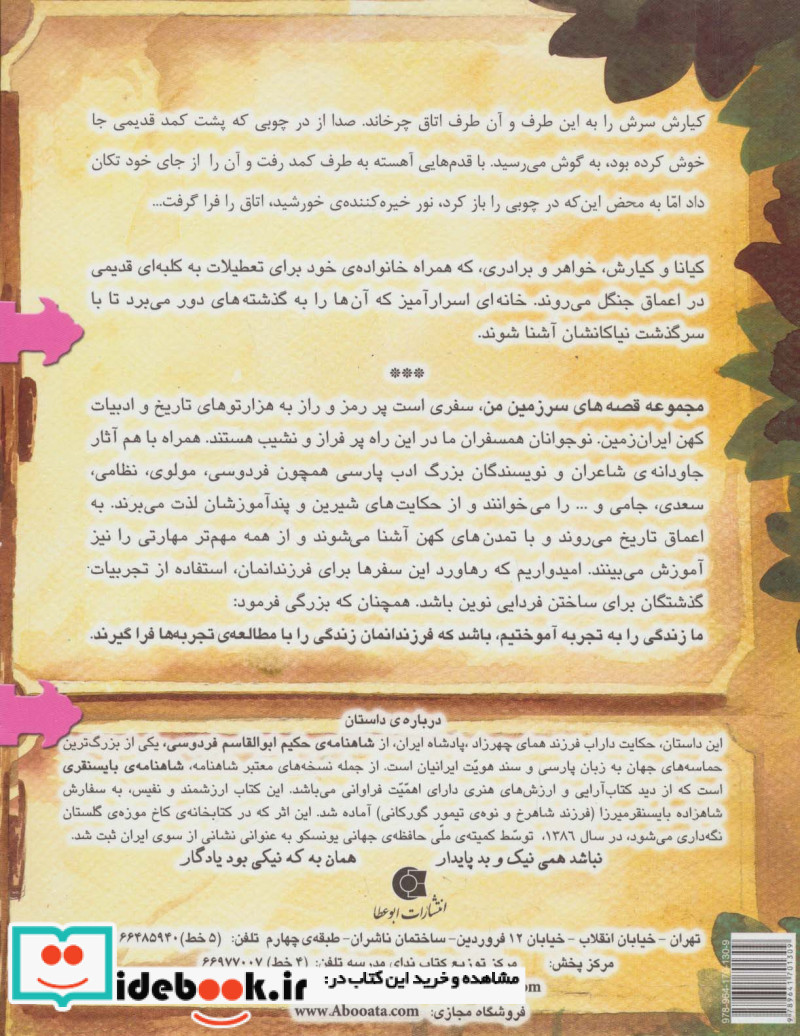 کیارش سرش را به این طرف و آن طرف اتاق چرخاند. صدا از در چوبی که پشت کمد قدیمی جا
خوش کرده بود، به گوش می‌رسید. با قدم‌هایی آهسته به طرف کمد رفت و آن را از جای خود تکان
داد امّا به محض این‌که در چوبی را باز کرد، نور خیره‌کننده‌ی خورشید، اتاق را فرا گرفت...
کیانا و کیارش، خواهر و برادری، که همراه خانواده‌ی خود برای تعطیلات به کلبه‌ای قدیمی
در اعماق جنگل می‌روند. خانه‌ای اسرارآمیز که آن‌ها را به گذشته‌های دور می‌برد تا با
سرگذشت نیاکانشان آشنا شوند.
***
مجموعه قصه‌های سرزمین من، سفری است پر رمز و راز به هزارتوهای تاریخ و ادبیات
کهن ایران‌زمین. نوجوانان همسفران ما در این راه پر فراز و نشیب هستند. همراه با هم آثار
جاودانه‌ی شاعران و نویسندگان بزرگ ادب پارسی همچون فردوسی، مولوی، نظامی،
سعدی، جامی و ... را می‌خوانند و از حکایت‌های شیرین و پندآموزشان لذت می‌برند. به
اعماق تاریخ می‌روند و با تمدن‌های کهن آشنا می‌شوند و از همه مهم‌تر مهارتی را نیز
آموزش می‌بینند. امیدواریم که رهاورد این سفرها برای فرزندانمان، استفاده از تجربیات
گذشتگان برای ساختن فردایی نوین باشد. همچنان که بزرگی فرمود:
ما زندگی را به تجربه آموختیم، باشد که فرزندانمان زندگی را با مطالعه‌ی تجربه‌ها فرا گیرند.
درباره‌ی داستان
این داستان، حکایت داراب فرزند همای چهرزاد، پادشاه ایران، از شاهنامه‌ی حکیم ابوالقاسم فردوسی، یکی از بزرگ‌ترین
حماسه‌های جهان به زبان پارسی و سند هویّت ایرانیان است. از جمله نسخه‌های معتبر شاهنامه، شاهنامه‌ی بایسنقری
است که از دید کتاب‌آرایی و ارزش‌های هنری دارای اهمّیّت فراوانی می‌باشد. این کتاب ارزشمند و نفیس، به سفارش
شاهزاده بایسنقرمیرزا (فرزند شاهرخ و نوه‌ی تیمور گورکانی) آماده شد. این اثر که در کتابخانه‌ی کاخ موزه‌ی گلستان
نگه‌داری می‌شود، در سال ۱۳۸۶، توسّط کمیته‌ی ملّی حافظه‌ی جهانی یونسکو به عنوانی نشانی از سوی ایران ثبت شد.
نباشد همی نیک و بد پایدار همان به که نیکی بود یادگار
انتشارات ابوعطا
تهران - خیابان انقلاب - خیابان ۱۲ فروردین - ساختمان ناشران - طبقه‌ی چهارم تلفن: (۵ خط) ۶۶۴۸۵۹۴۰
مرکز پخش: مرکز توزیع کتاب ندای مدرسه تلفن: (۴ خط) ۶۶۹۷۷۰۰۷
مشاهده و خرید این کتاب در:
idebook.ir
om
فروشگاه مجازی: www.Abooata.com
9789641701309